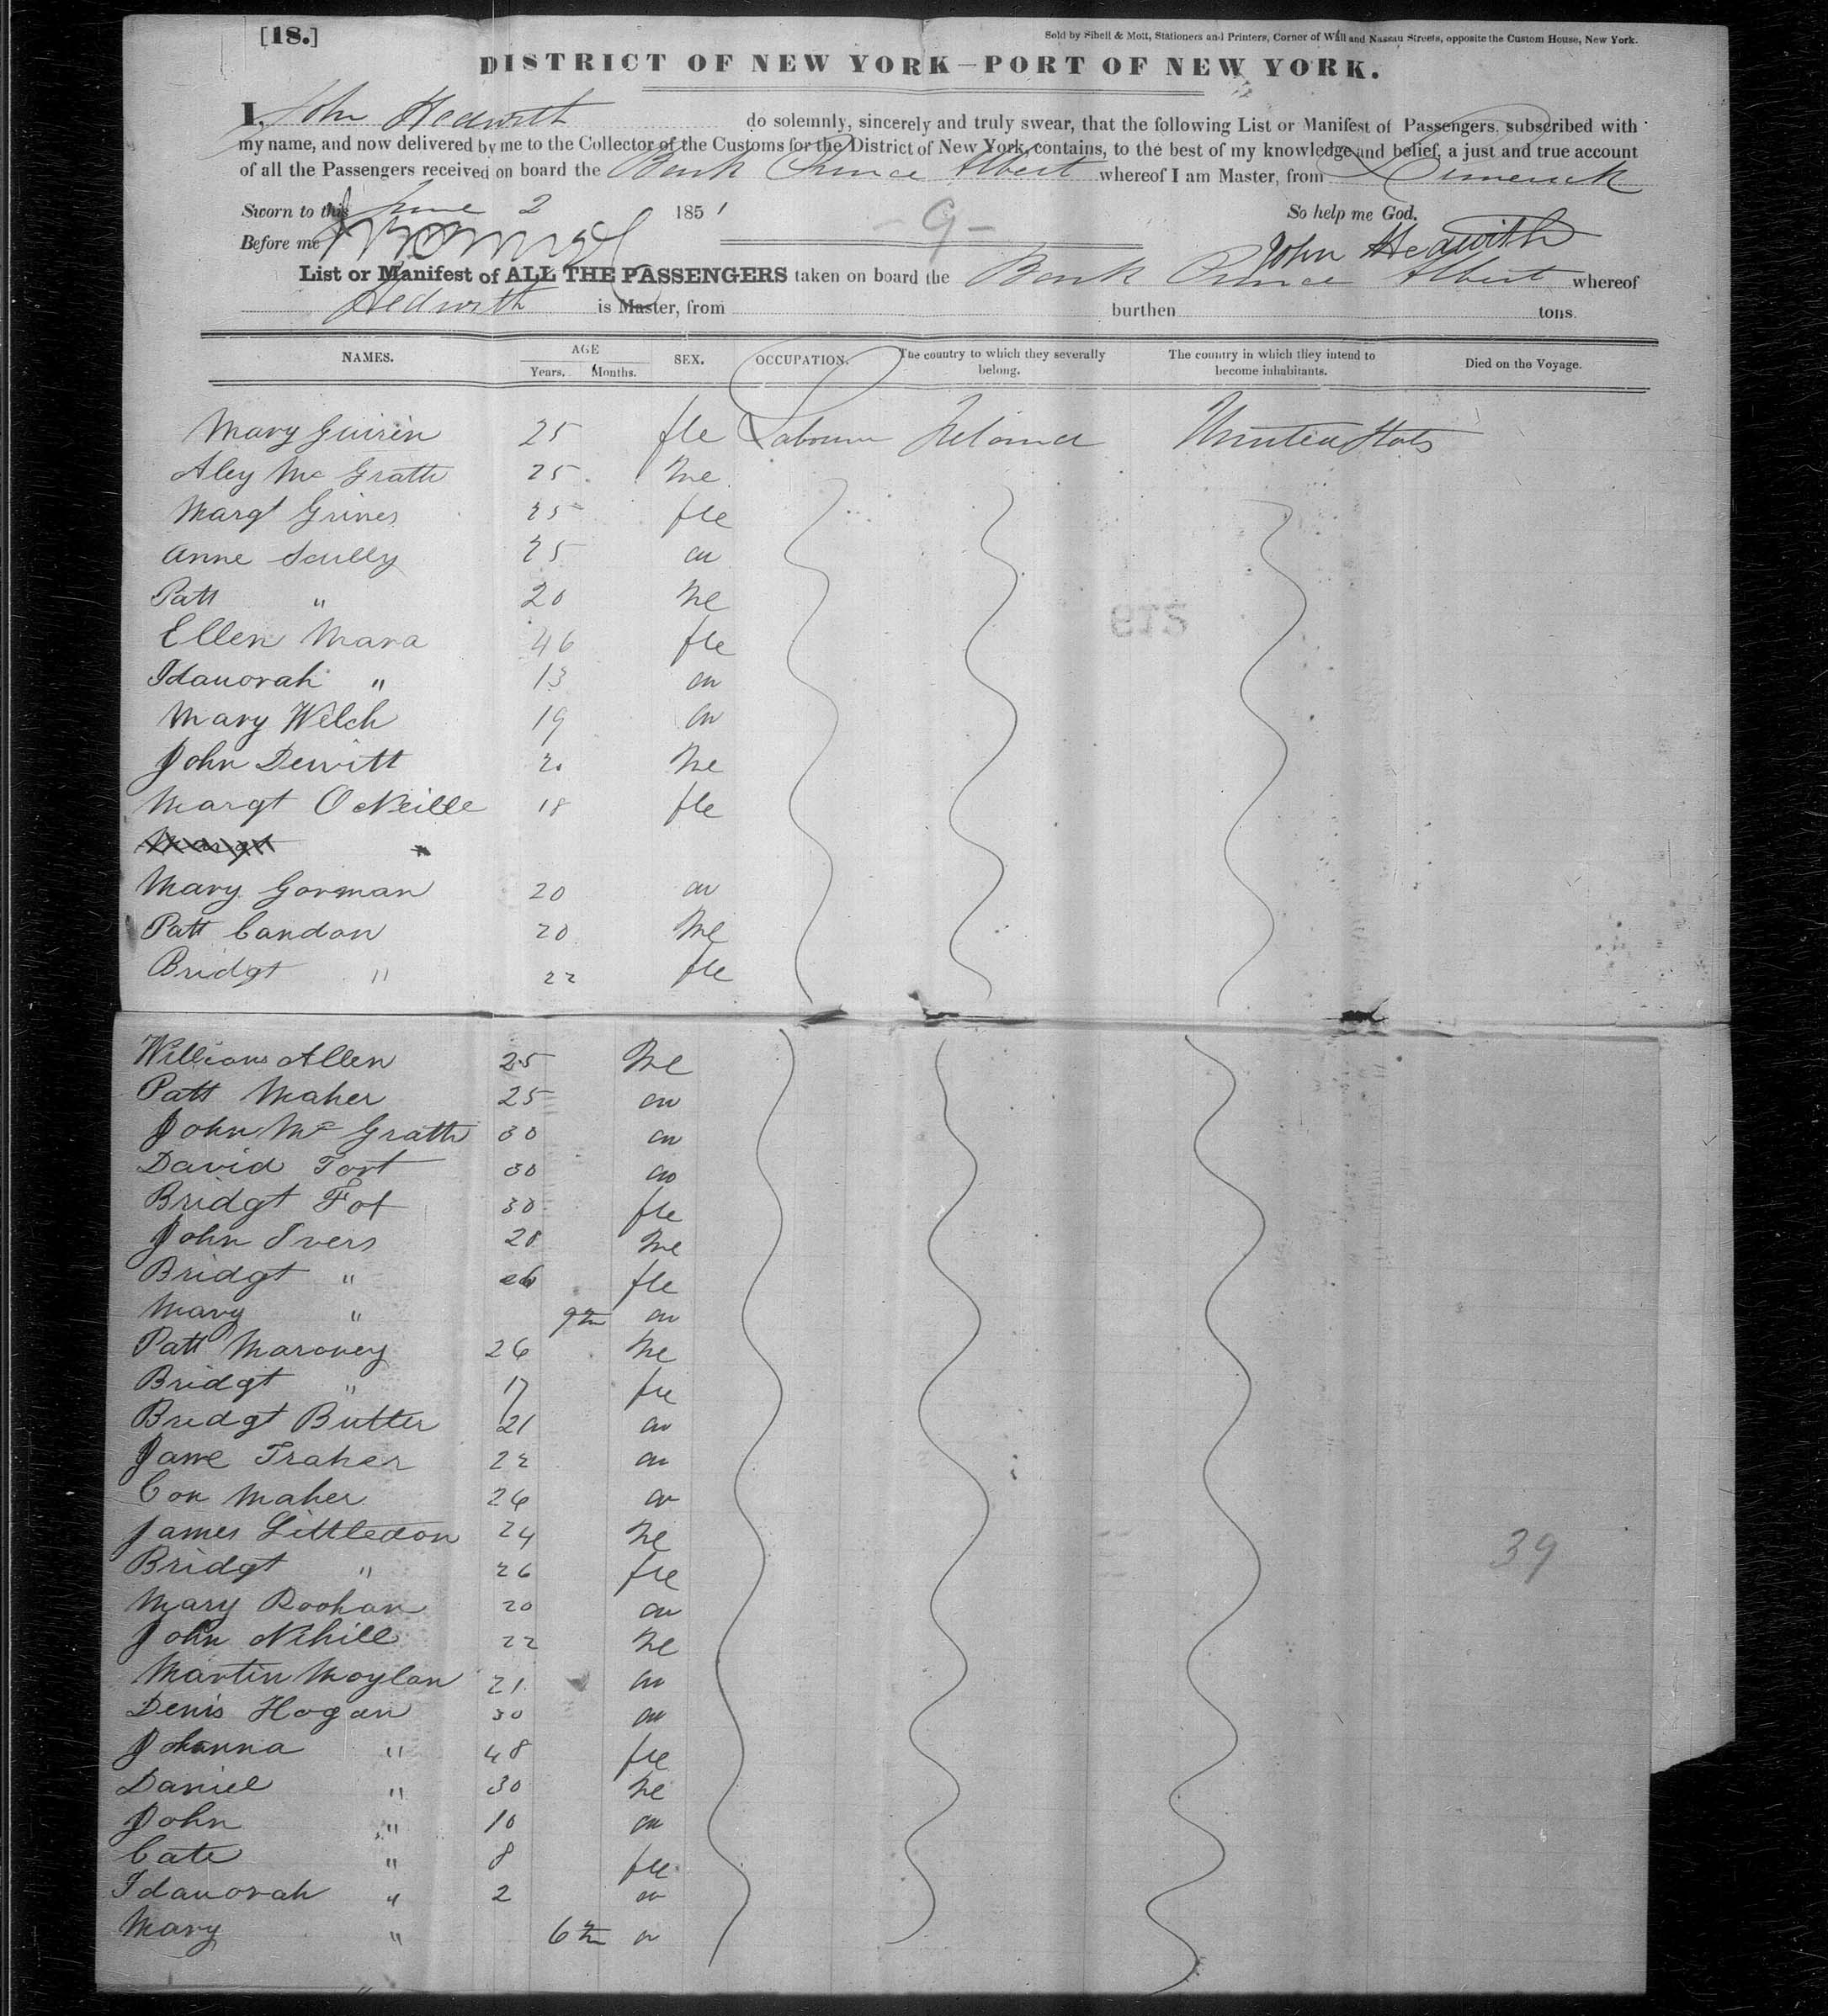 [18.]
Sold by Sibell & Mott, Stationers and Printers, Corner of Wall and Nassau Streets, opposite the Custom House, New York.
DISTRICT OF NEW YORK—PORT OF NEW YORK.
I, John Hedwith do solemnly, sincerely and truly swear, that the following List or Manifest of Passengers, subscribed with
my name, and now delivered by me to the Collector of the Customs for the District of New York, contains, to the best of my knowledge and belief, a just and true account
of all the Passengers received on board the Bark Prince Albert whereof I am Master, from Limerick
Sworn to this June 2 1851 So help me God.
Before me John Hedwith
- 9 -
List or Manifest of ALL THE PASSENGERS taken on board the Bark Prince Albert whereof
Hedwith is Master, from burthen tons.
NAMES. AGE SEX. OCCUPATION. The country to which they severally belong. The country in which they intend to become inhabitants. Died on the Voyage.
Years. Months.
Mary 25 fle Labourer Ireland
Aley Mc Grath 25 me
Margt Grines 25 fle
Anne Scully 25 "
Patt " 20 me
Ellen Mara 46 fle
" 13
Mary Welch 19
John Dewitt me
Margt O Neille 18 fle
Margt "
Mary Gorman 20
Patt Candon 20 me
Bridgt " 22 fle
William Allen 25 me
Patt Maher 25
John Mc Grath 30
David 30
Bridgt 30 fle
John Ivers 28 me
Bridgt " 26 fle
Mary " 9m
Patt Maroney 26 me
Bridgt " 17 fle
Bridgt Butler 21
Jane Traher 22
Con Maher 26
James Littledon 24 me
Bridgt " 26 fle
Mary Roohan 20
John Nihill 22 me
Martin Moylan 21
Denis Hogan 30
Johanna " 48 fle
Daniel " 30 me
John " 10
Cate " 8 fle
" 2
Mary " 6m
39